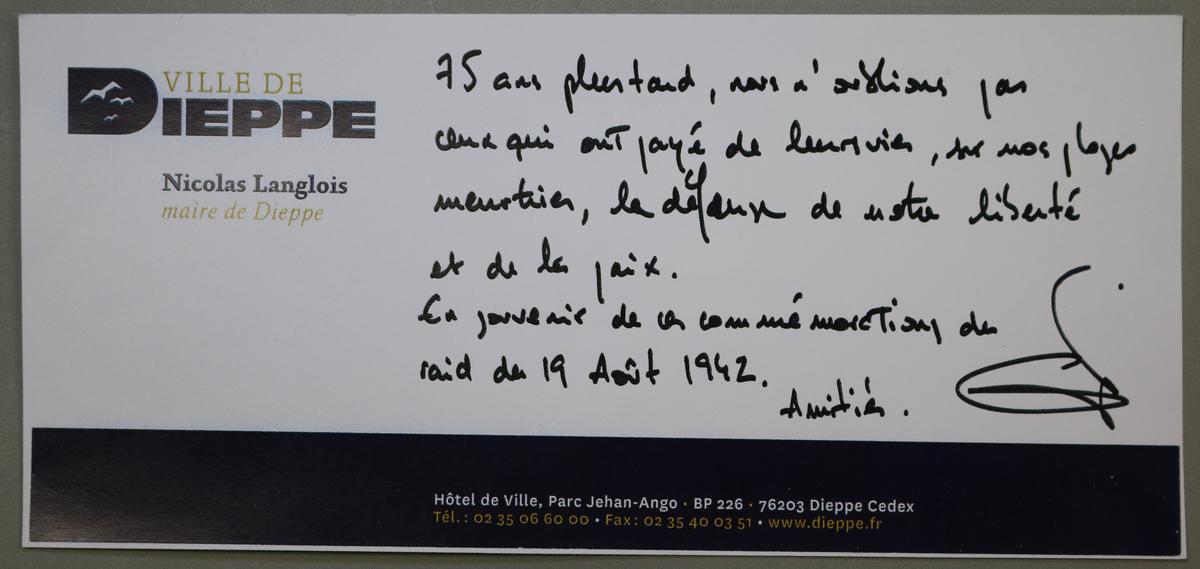 VILLE DE
DIEPPE
Nicolas Langlois
maire de Dieppe
75 ans plus tard, nous n'oublions pas
ceux qui ont payé de leurs vies, sur nos plages
meurtries, la défense de notre liberté
et de la paix.
En souvenir de ces commémorations du
raid du 19 Août 1942.
Amitiés.
Hôtel de Ville, Parc Jehan-Ango • BP 226 • 76203 Dieppe Cedex
Tél. : 02 35 06 60 00 • Fax : 02 35 40 03 51 • www.dieppe.fr